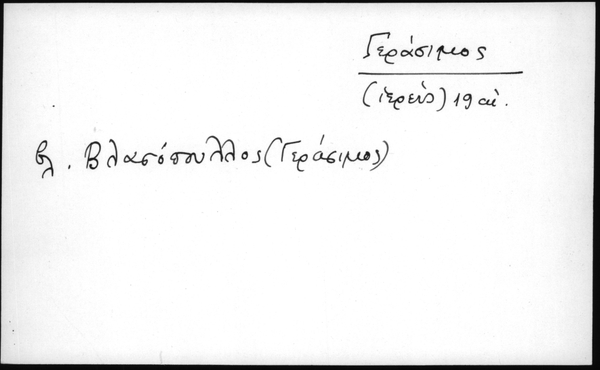 Γεράσιμος
(ἱερεύς) 19 αἰ.
βλ. Βλασόπουλλος (Γεράσιμος)